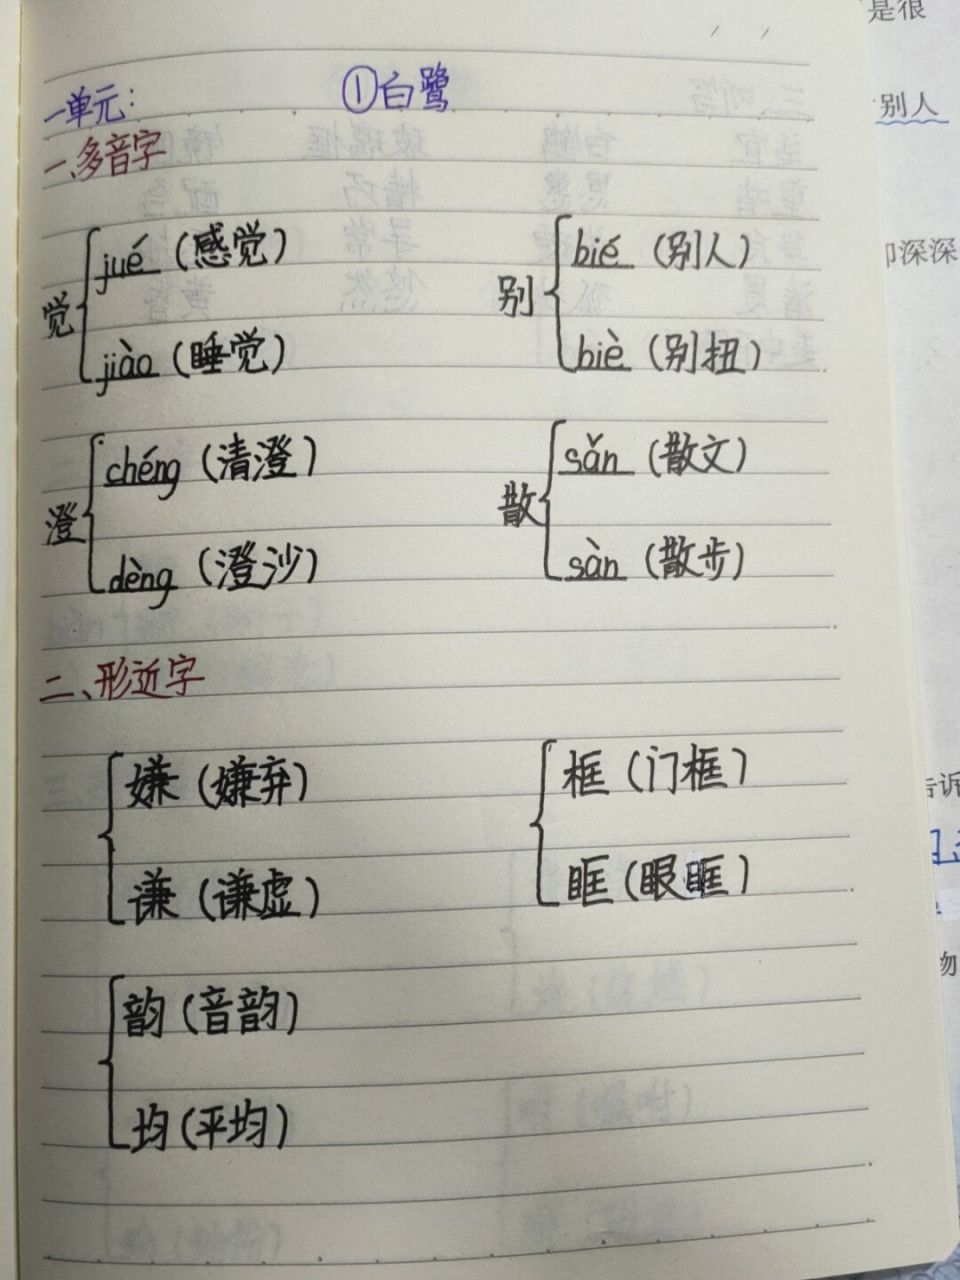 一单元: ①白鹭
一、多音字
觉 jué (感觉) jiào (睡觉)
别 bié (别人) biè (别扭)
澄 chéng (清澄) dèng (澄沙)
散 sǎn (散文) sàn (散步)
二、形近字
嫌 (嫌弃) 谦 (谦虚)
框 (门框) 眶 (眼眶)
韵 (音韵) 均 (平均)
是很
别人
却深深
告诉
物